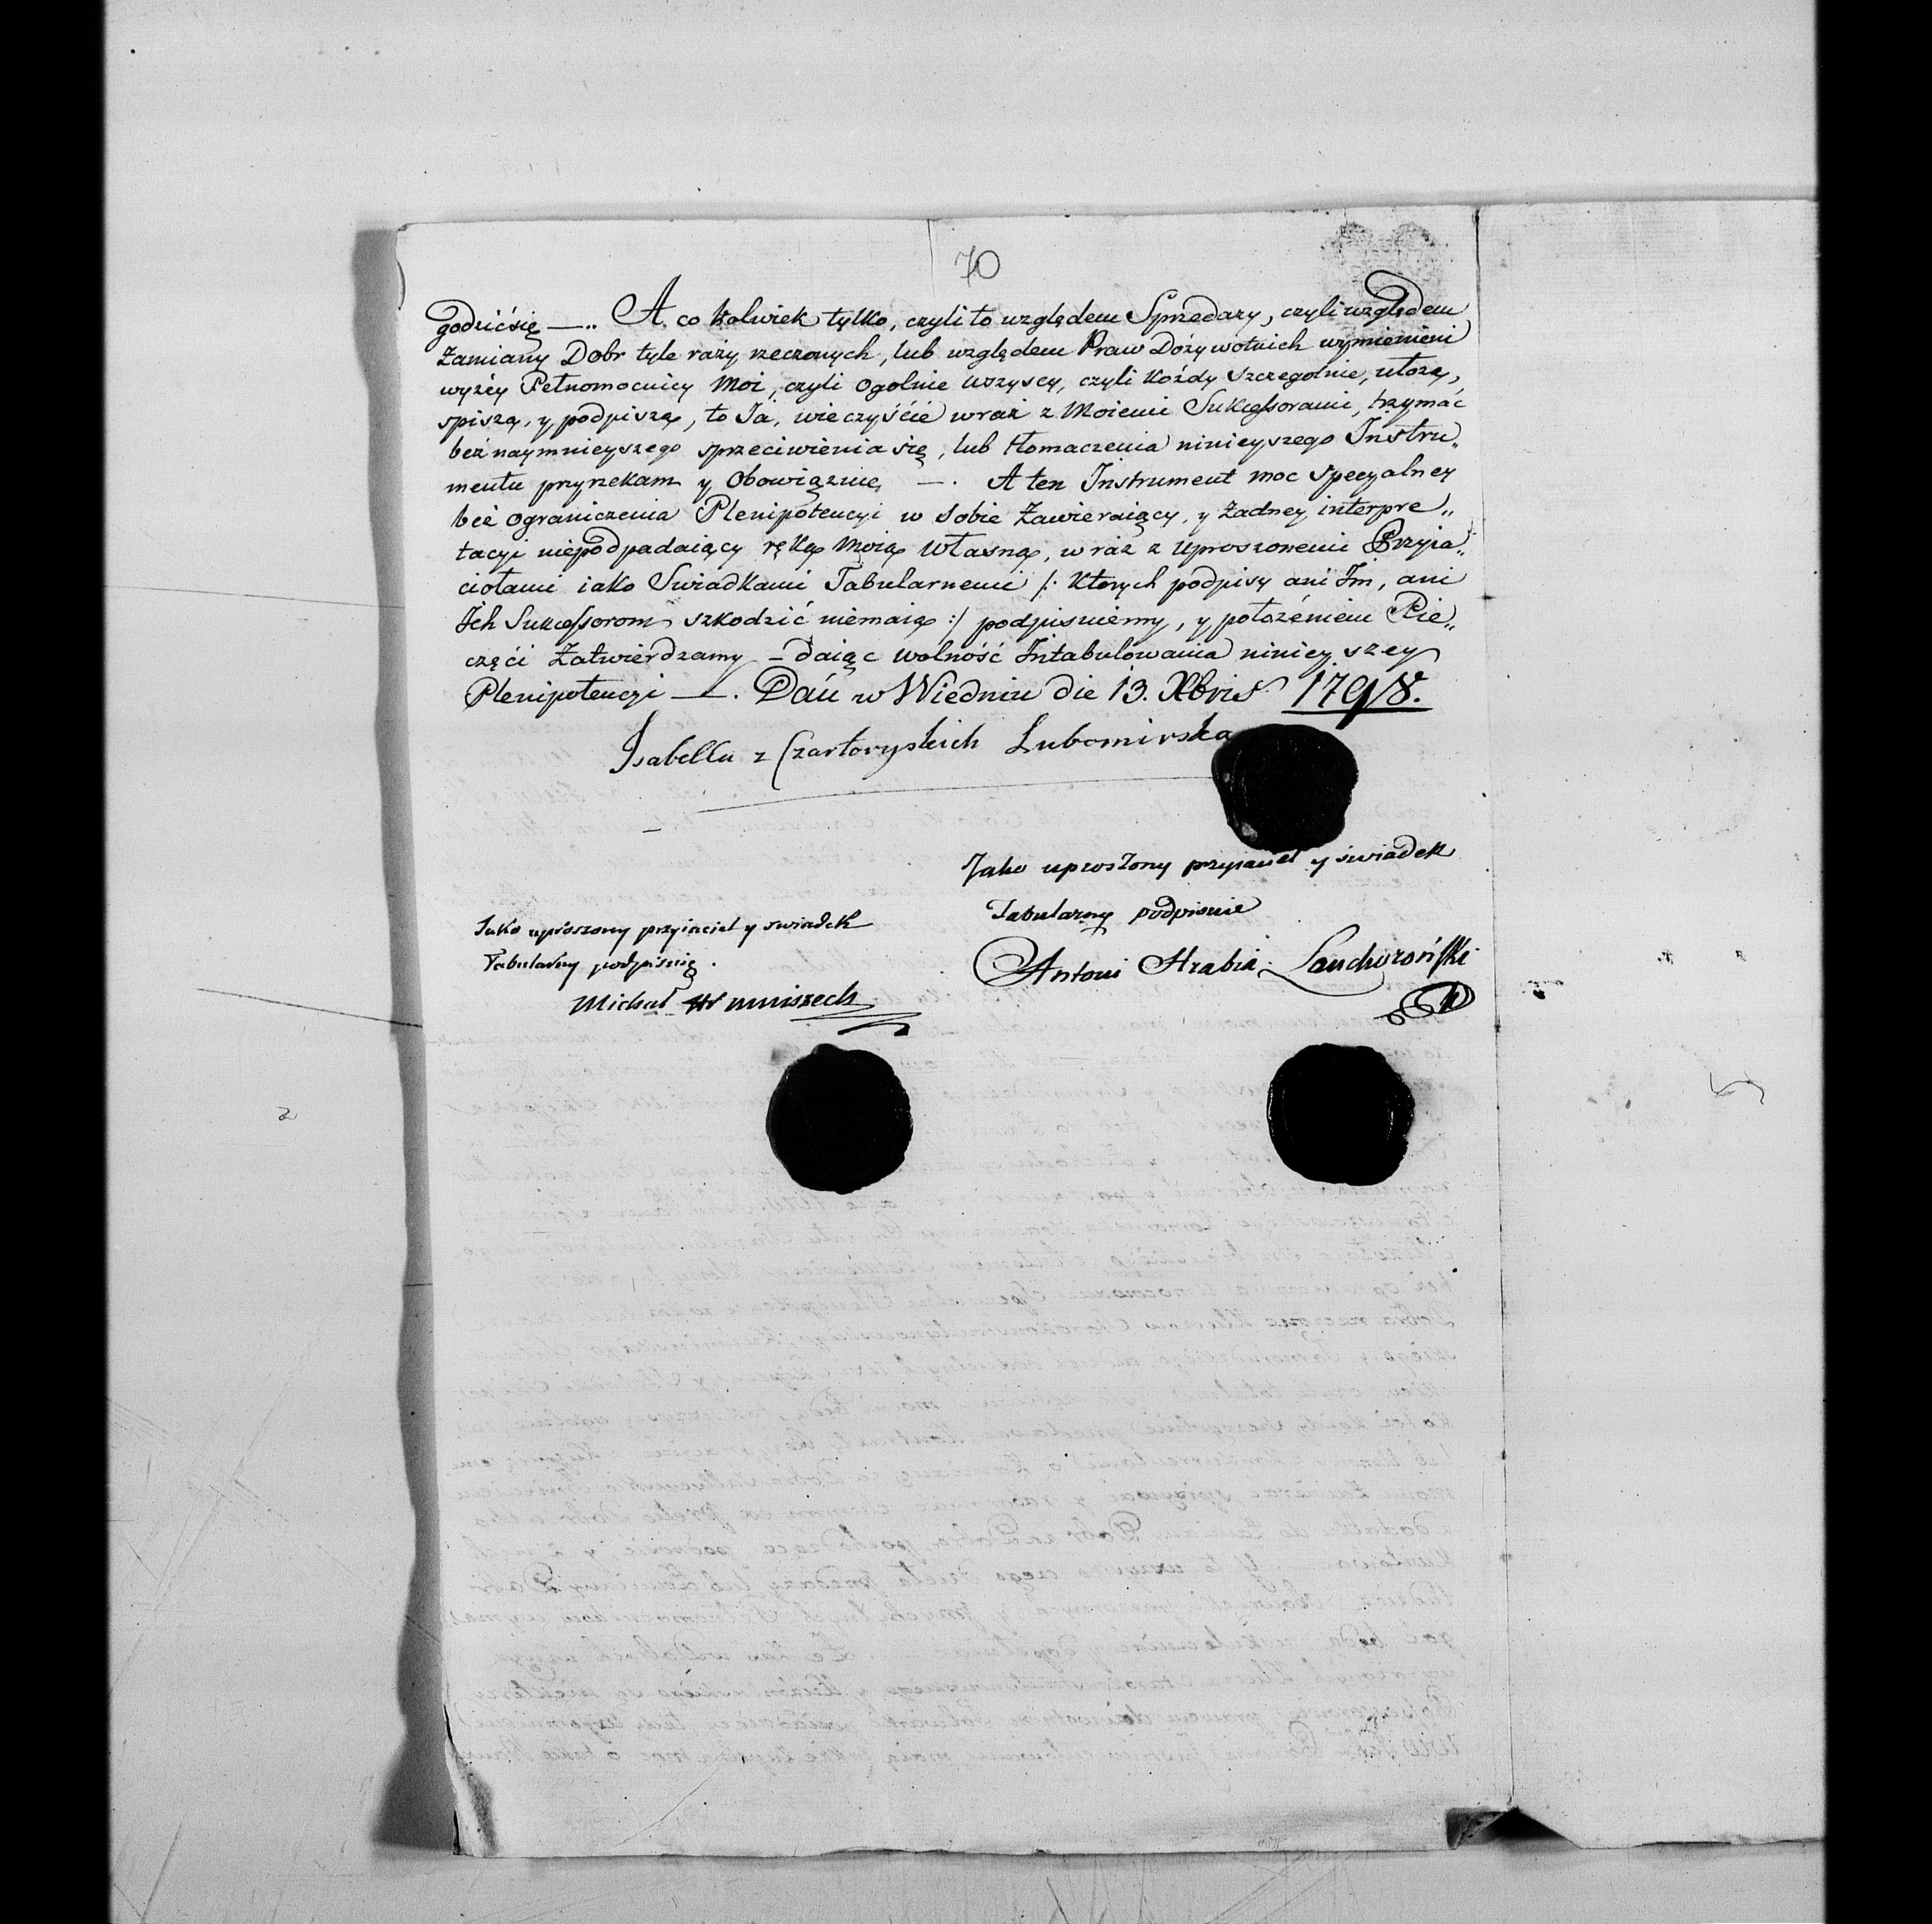 70
godzić się —.. A co kolwiek tylko, czyli to względem Sprzedaży, czyli względem
Zamiany Dobr tyle razy rzeczonych, lub względem Praw Dożywotnich wymienieni
wyżey Pełnomocnicy Moi, czyli ogolnie wszyscy, czyli każdy szczegolnie, ułożą,
spiszą, y podpiszą, to Ja, wieczyście wraz z Moiemi Sukcessorami, trzymać
bez naymnieyszego sprzeciwienia się, lub tłomaczenia ninieyszego Instru„
mentu przyrzekam y Obowiązuię —. A ten Instrument moc specyalney
bez ograniczenia Plenipotencyi w sobie Zawieraiący, y Żadney interpre„
tacyi niepodpadaiący ręką Moią własną, wraz z uproszonemi Przyia„
ciołami iako Swiadkami Tabularnemi /: Ktorych podpisy ani Im, ani
Ich Sukcessorom szkodzić niemaią :/ podpisuiemy, y położeniem Pie„
częci Zatwierdzamy – daiąc wolność Intabulowania ninieyszey
Plenipotencyi —. Dań w Wiedniu die 13. Xbris 1798.
Isabella z Czartoryskich Lubomirska
Jako uproszony przyiaciel y świadek
Tabularny podpisuie
Antoni Hrabia Lanckoroński
Jako uproszony przyiaciel y swiadek
Tabularny podpisuię.
Michał Hr mniszech